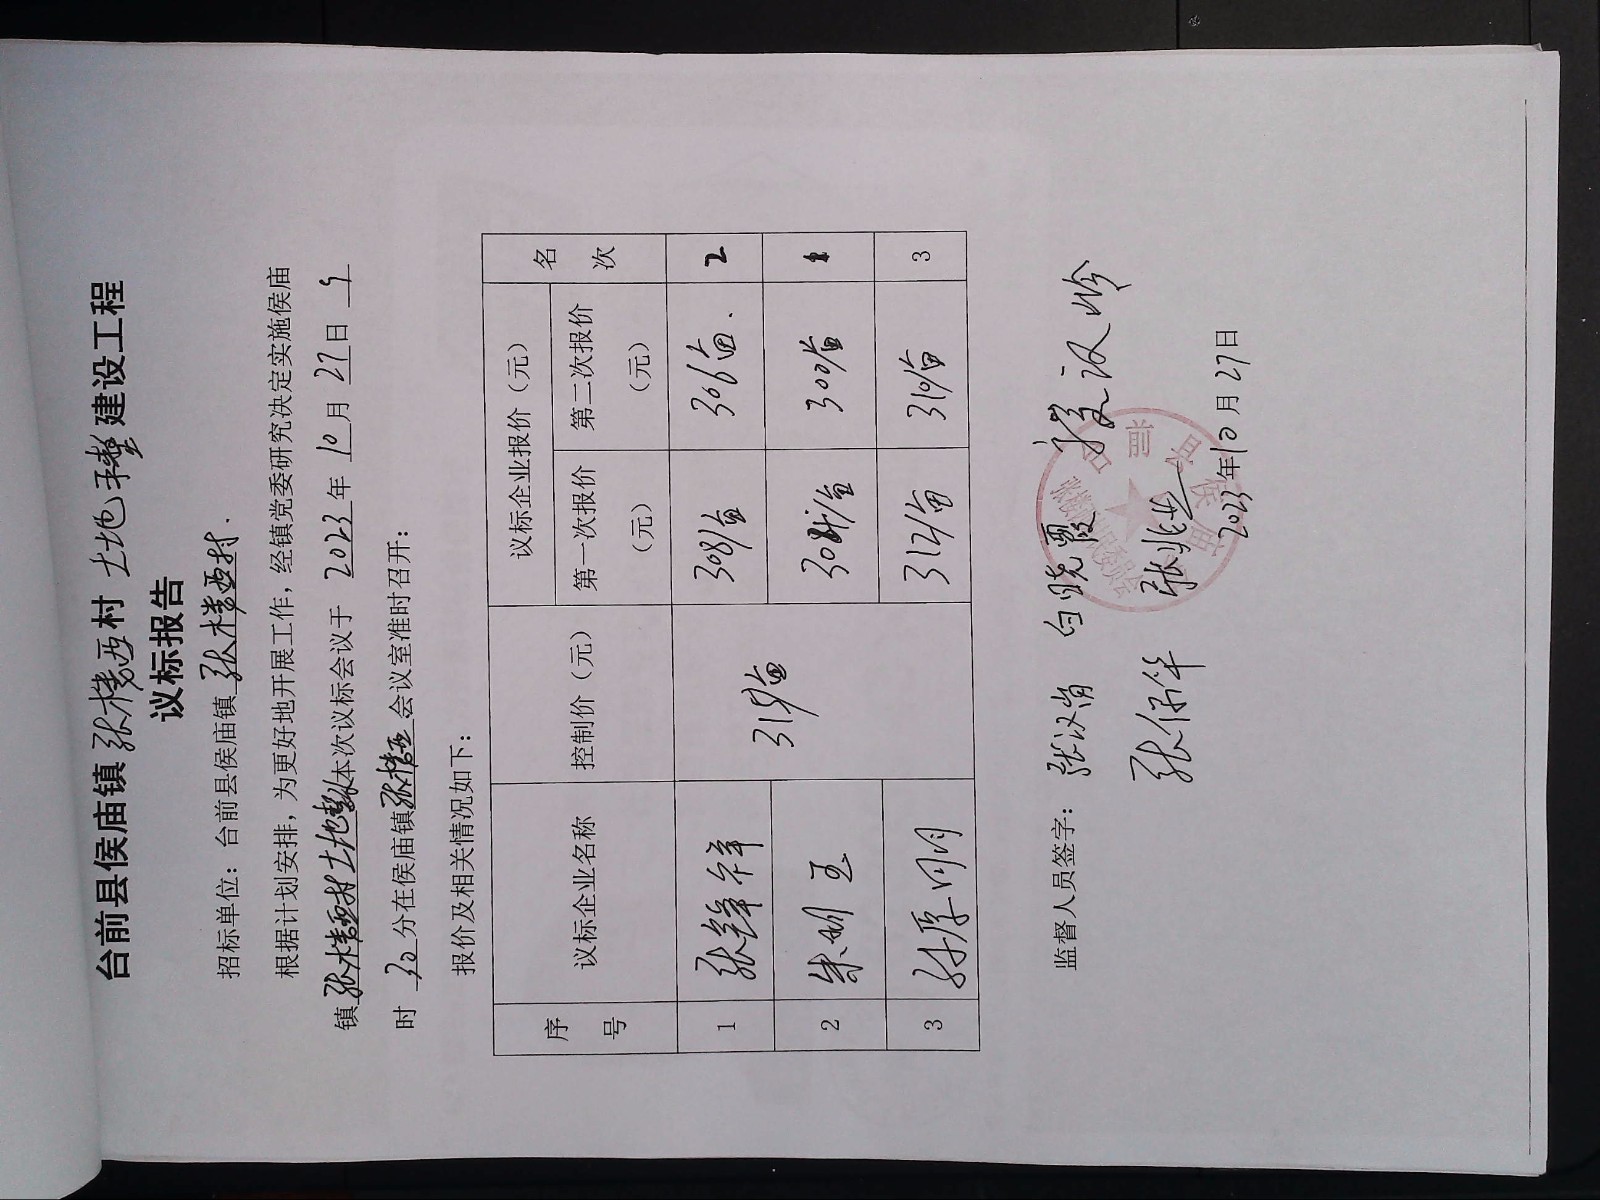 台前县侯庙镇张楼西村土地平整建设工程
议标报告
招标单位：台前县侯庙镇张楼西村.
根据计划安排，为更好地开展工作，经镇党委研究决定实施侯庙
镇张楼西村土地整本次议标会议于 2023 年 10 月 27 日 9
时 30 分在侯庙镇张楼西会议室准时召开：
报价及相关情况如下：
序号 议标企业名称 控制价（元） 议标企业报价（元） 名次
第一次报价（元） 第二次报价（元）
1 张锋祥 315/亩 308/亩 306/亩. 2
2 朱明玉 308/亩 300/亩 1
3 312/亩 310/亩 3
监督人员签字： 白晓霞
张保华 张兆兰
台前县侯庙
2023年10月27日